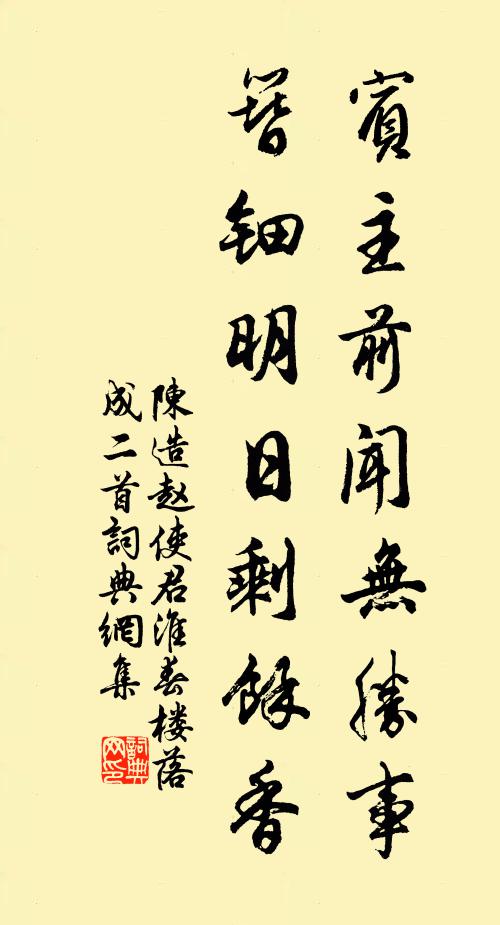 賓主前聞無勝事
簪鈿明日剩餘香
陳造赵使君淮春楼落
成二首詞典網集
詞典
网印